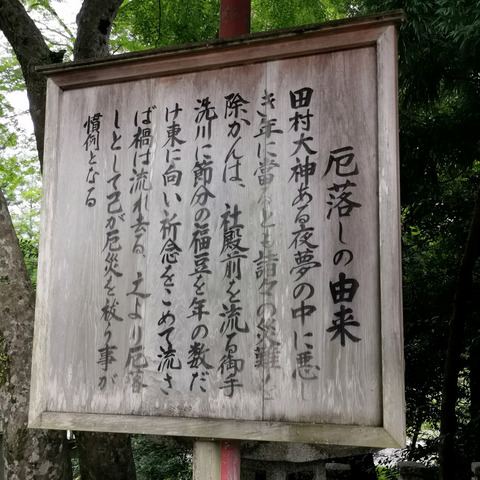 厄落しの由来
田村大神ある夜夢の中に悪し
き年に當るとも諸々の災難を
除かんは、社殿前を流る御手
洗川に節分の福豆を年の数だ
け東に向い祈念をこめて流さ
ば禍は流れ去る、之より厄落
しとして己が厄災を祓う事が
慣例となる